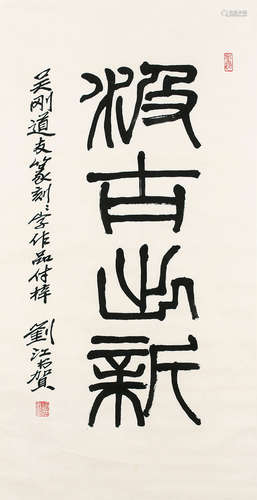 汲古出新
吴刚道友篆刻字作品付梓
劉江书贺